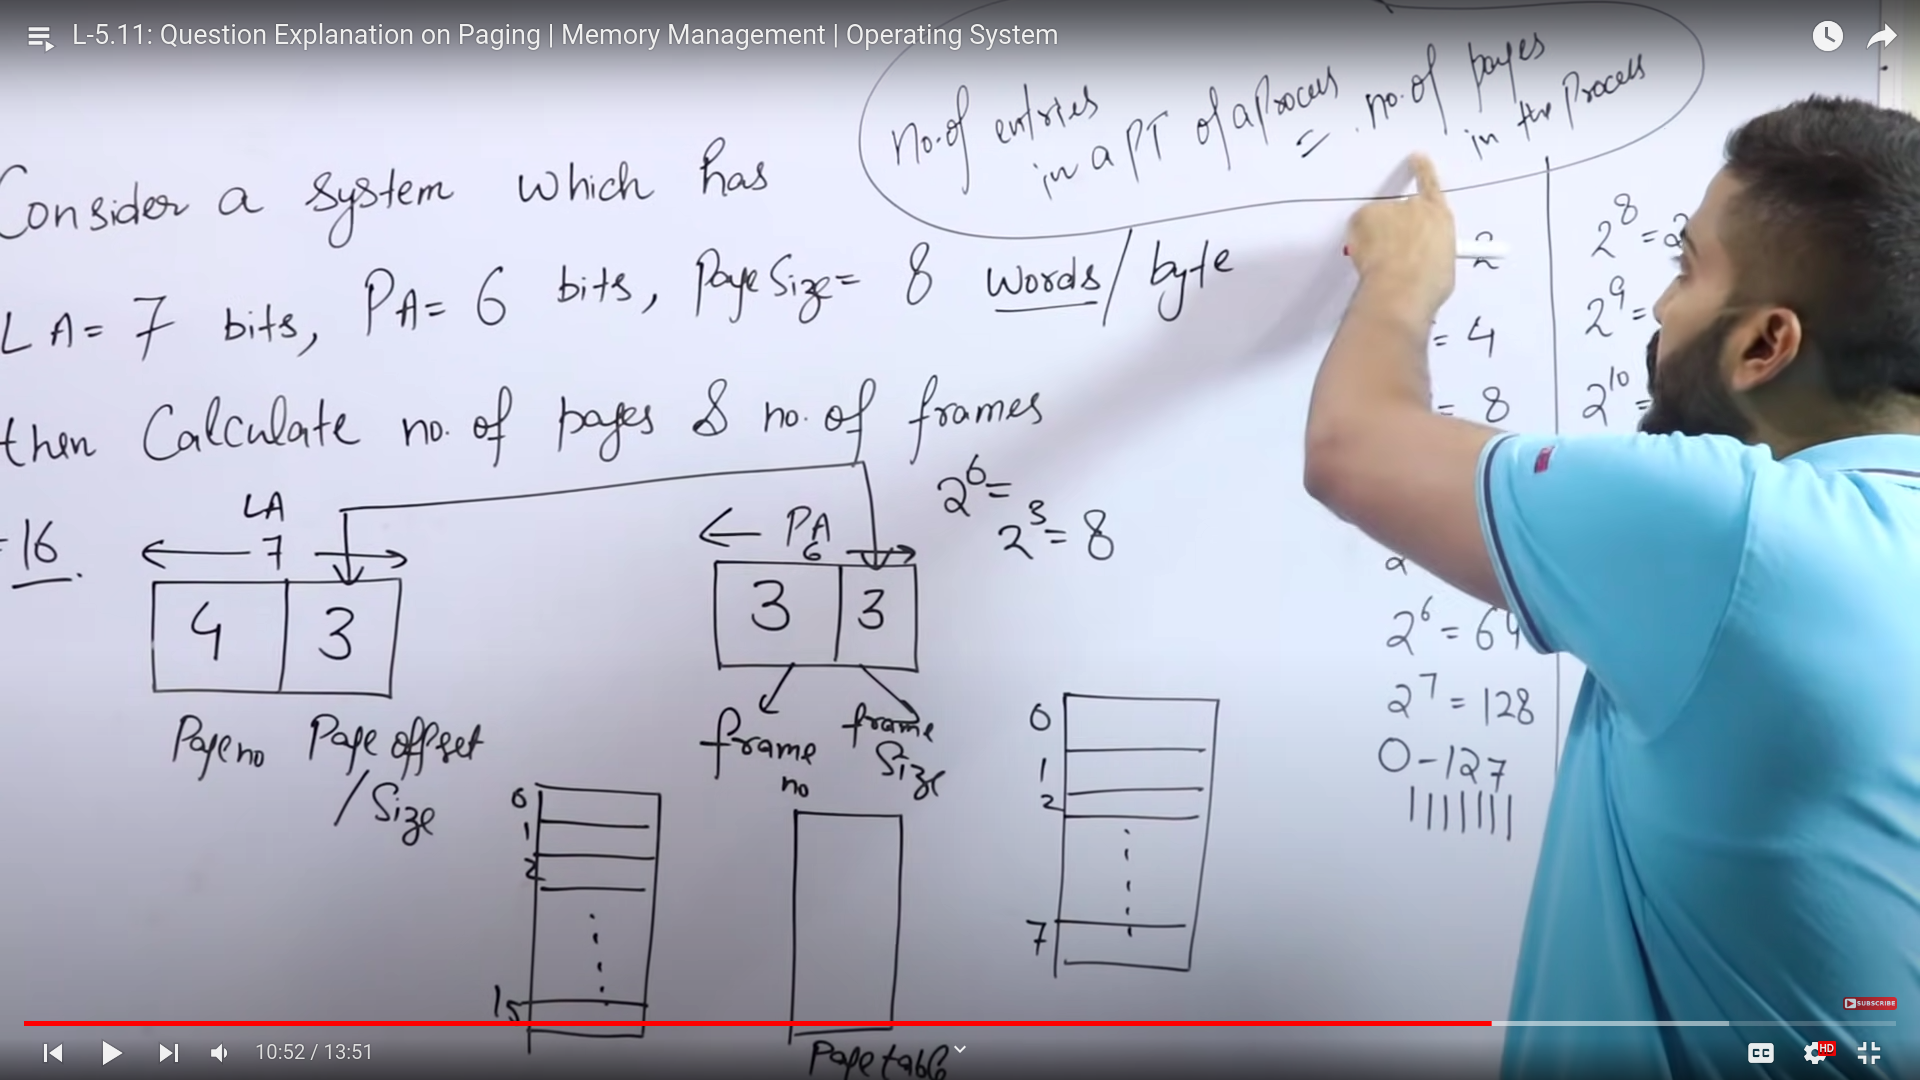 L-5.11: Question Explanation on Paging | Memory Management | Operating System
No. of entries
in a PT of a Process
= no. of pages
in the Process
Consider a system which has
LA = 7 bits, PA = 6 bits, Page Size = 8 words / byte
then Calculate no. of pages & no. of frames
= 16
LA
7
4 3
Page no Page offset
/ Size
PA
6
3 3
frame
no
frame
Size
2^6 =
2^3 = 8
0
1
2
15
Page table
0
1
2
7
2
= 4
= 8
2
2^6 = 64
2^7 = 128
0-127
1111111
2^8 = 2
2^9 =
2^10 =
SUBSCRIBE
10:52 / 13:51
CC
HD